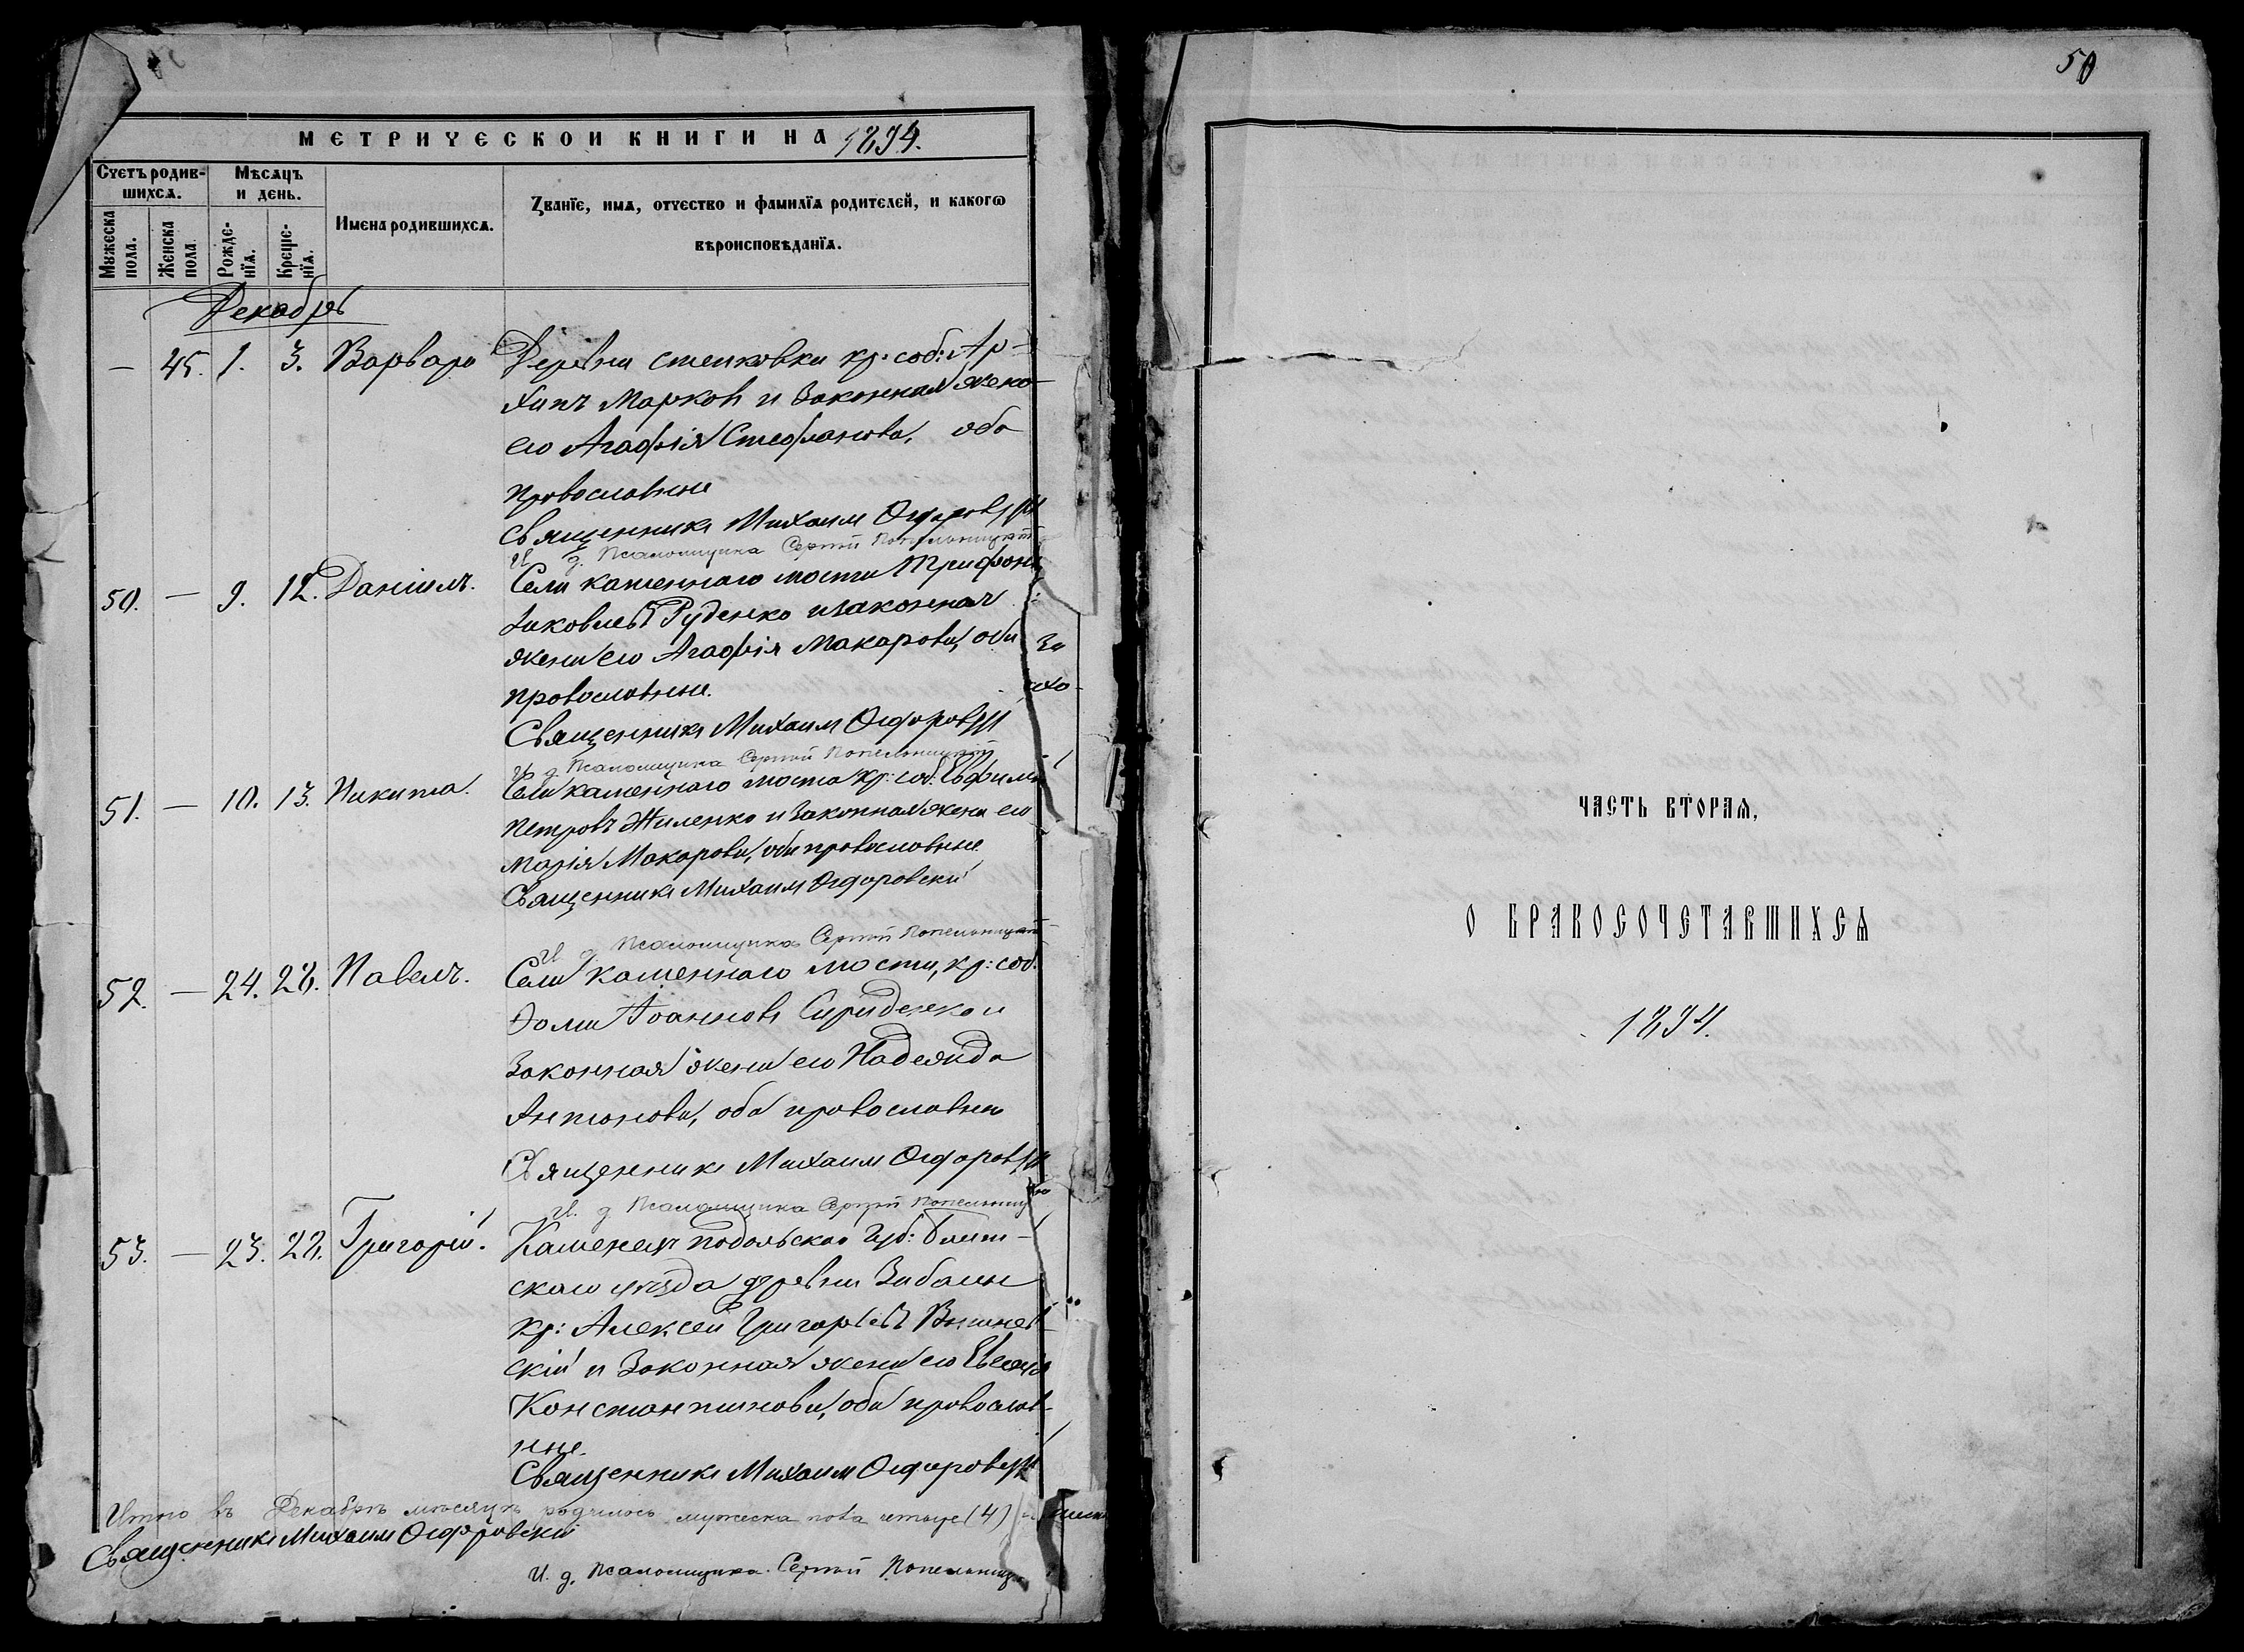 МЕТРИЧЕСКОЙ КНИГИ НА 1894.
Счетъ родив-
шихся.
Мѣсяцъ
и день.
Мужеска
пола.
Женска
пола
Рожде-
нїя.
Креще-
нїя.
Имена родившихся.
Званїе, имя, отчество и фамилїя родителей, и какогѡ
вѣроисповѣданїя.
Декабрь
— 45. 1. 3. Варвара Деревни Степковки кр: соб: Ар-
хипъ Марковъ и Законная жена
его Агафія Стефанова, оба
православные
Священникъ Михаилъ Сидоровскій
И. д. Псаломщика Сергій Попельницкій
50. — 9. 12. Даніилъ. Села каменнаго моста Трифонъ
Яковлевъ Руденко и законная
жена его Агафія Макарова, оба
православные.
Священникъ Михаилъ Сидоровскій
И. д. Псаломщика Сергій Попельницкій
51. — 10. 13. Никита. Села каменнаго моста кр: соб. Евфимій
Петровъ Жиленко и Законная жена его
Марія Макарова, оба православные
Священникъ Михаилъ Сидоровскій
И. д. Псаломщика Сергій Попельницкій
52. — 24. 28. Павелъ. Села каменнаго моста, кр: соб.
Ѳома Іоанновъ Спиденко и
Законная жена его Надежда
Антонова, оба православные
Священникъ Михаилъ Сидоровскій
И. д. Псаломщика Сергій Попельниц
53. — 23. 28. Григорій. Каменецъ подольской Губ: Балт-
скаго уѣзда деревни
кр: Алексей Григорьевъ Вишнев-
скій и Законная жена его
Константинова, оба православ-
ные.
Священникъ Михаилъ Сидоровскій
Итого въ Декабрѣ мѣсяцѣ родилось мужеска пола четыре (4)
Священникъ Михаилъ Сидоровскій
И. д. Псаломщика Сергій Попельниц
50
ЧАСТЬ ВТОРАЯ,
О БРАКОСОЧЕТАВШИХСЯ
1894.